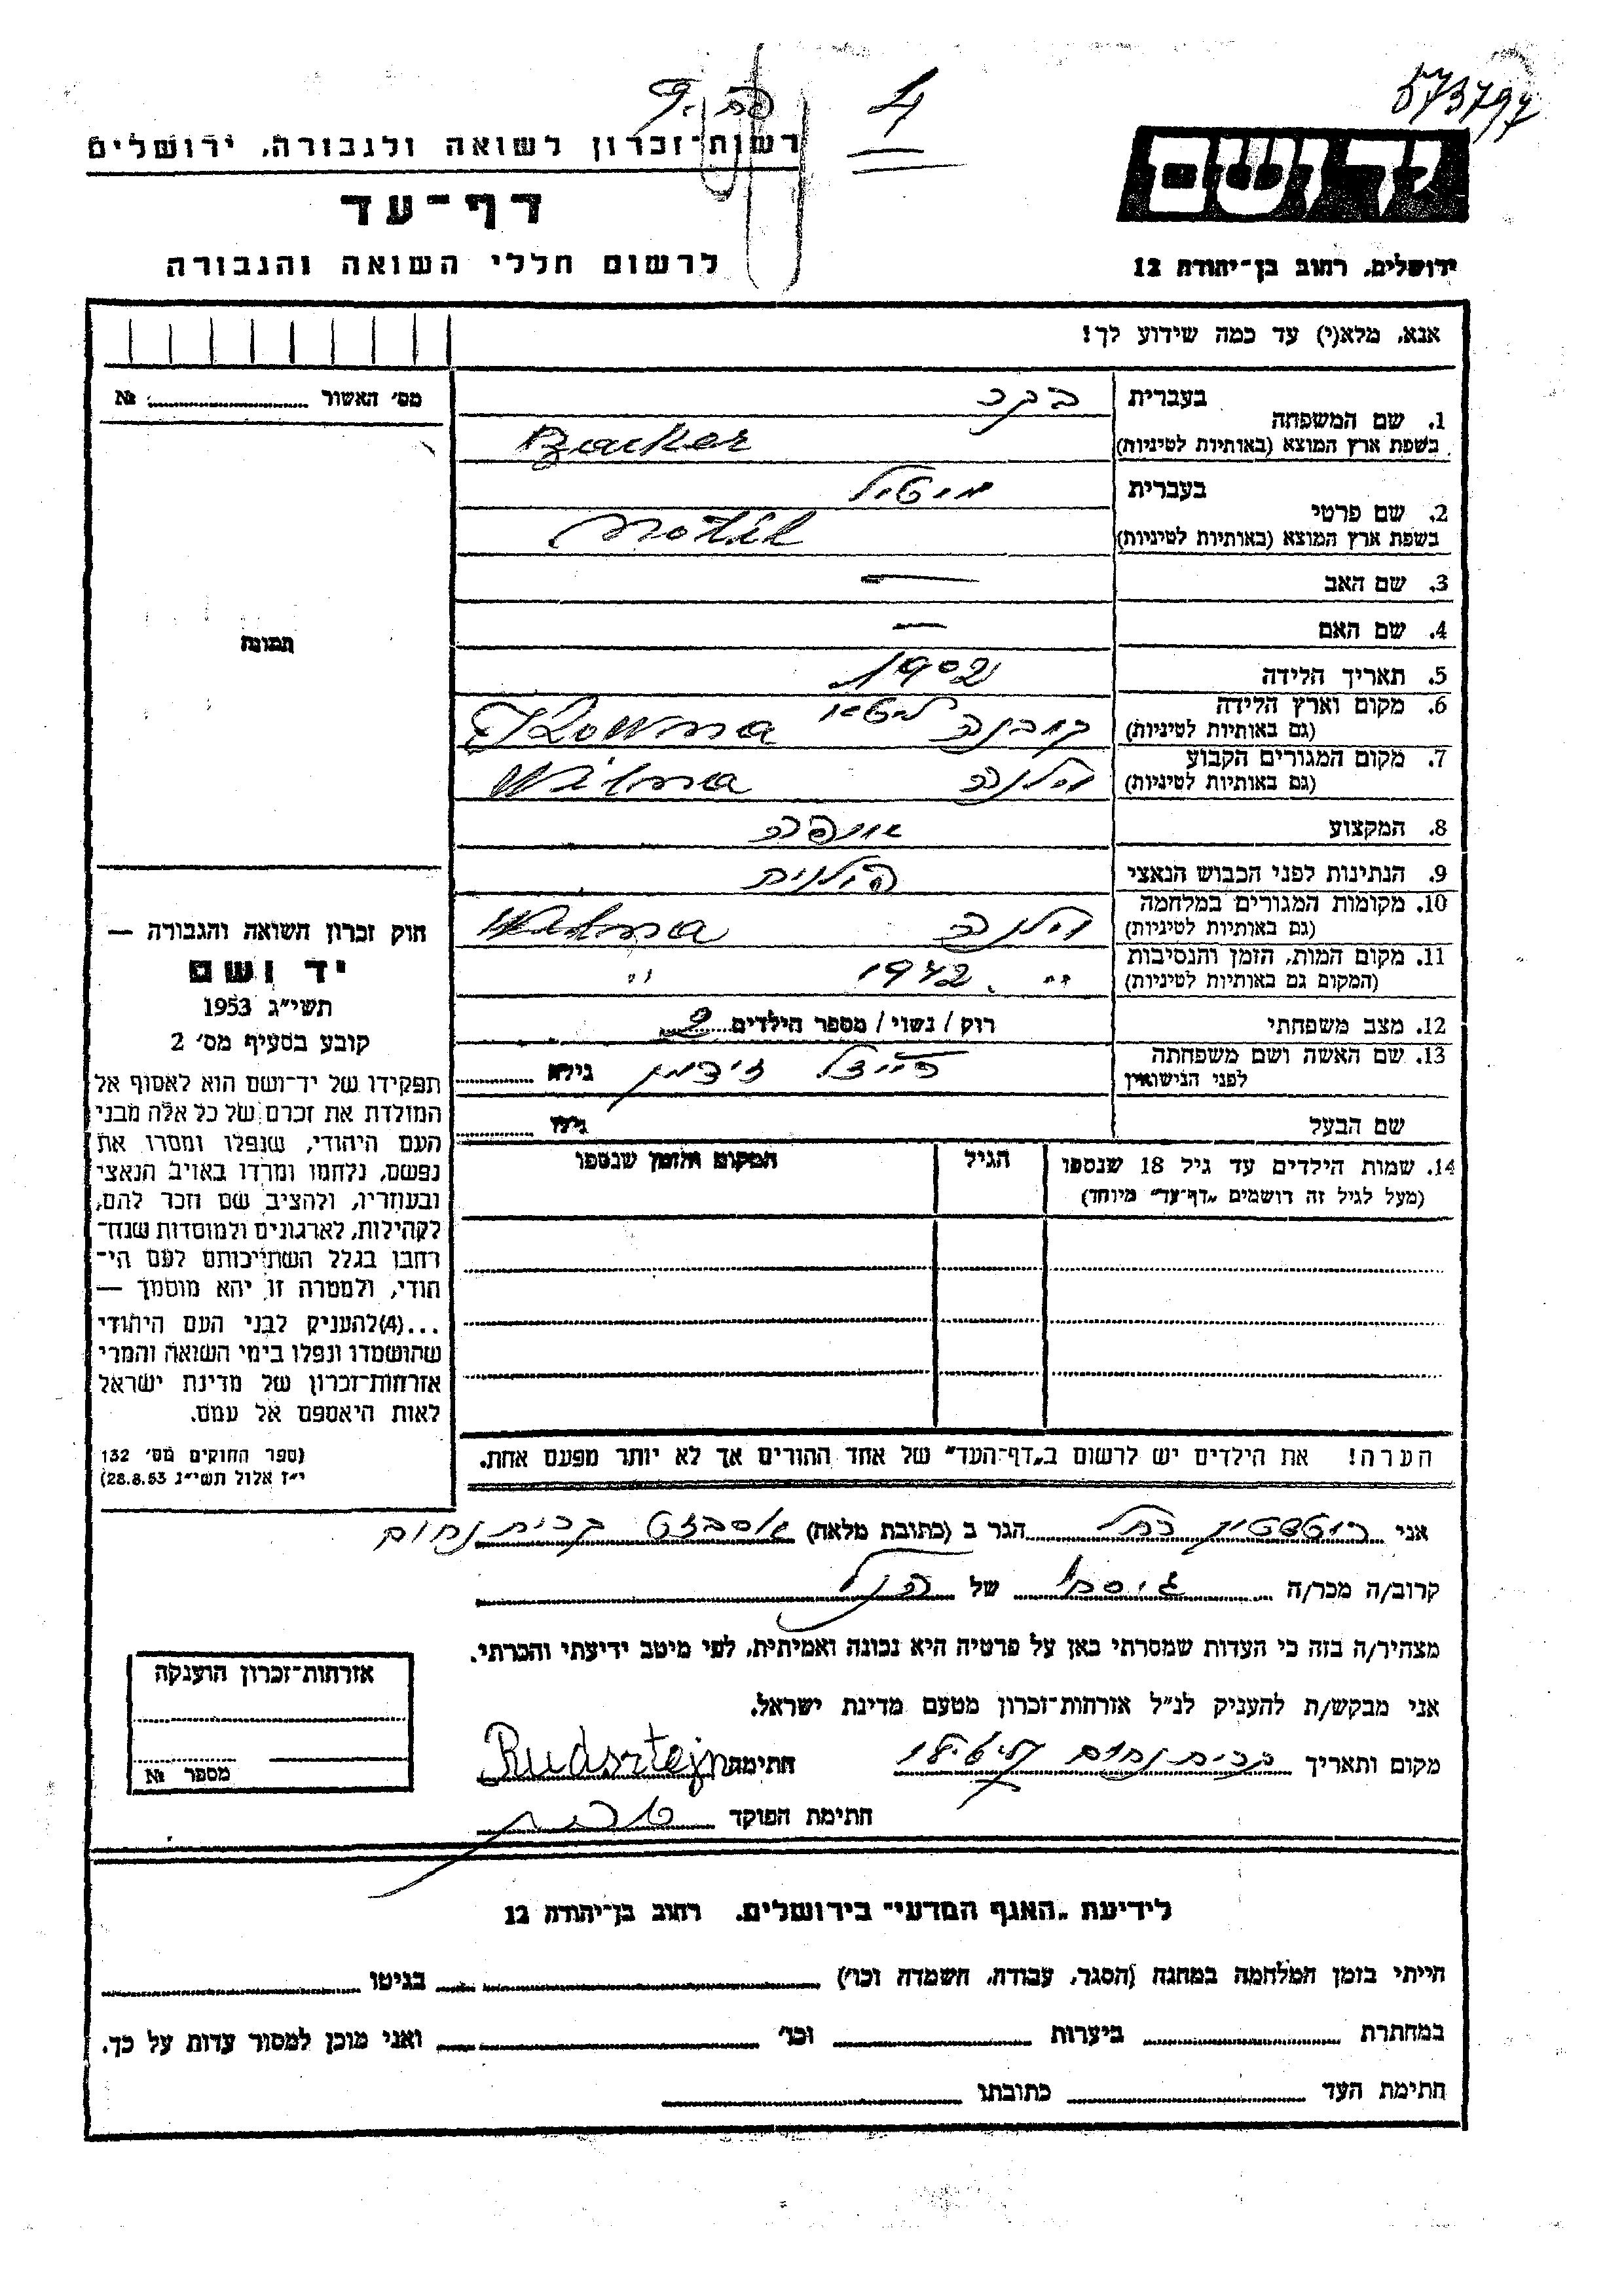 573794
4
רשות־זכרון לשואה ולגבורה, ירושלים
יד ושם
דף־עד
לרשום חללי השואה והגבורה
ירושלים, רחוב בן־יהודה 12
אנא, מלא(י) עד כמה שידוע לך!
מס׳ האשור № 
1. שם המשפחה
בעברית בקר
בשפת ארץ המוצא (באותיות לטיניות) Backer
2. שם פרטי
בעברית מוטיל
בשפת ארץ המוצא (באותיות לטיניות) Motil
3. שם האב —
4. שם האם —
5. תאריך הלידה 1902
6. מקום וארץ הלידה (גם באותיות לטיניות) קובנה ליטא Kowna
7. מקום המגורים הקבוע (גם באותיות לטיניות) וילנה Wilna
8. המקצוע אופה
9. הנתינות לפני הכבוש הנאצי פולנית
10. מקומות המגורים במלחמה (גם באותיות לטיניות) וילנה Wilna
11. מקום המות, הזמן והנסיבות (המקום גם באותיות לטיניות) " 1942 "
12. מצב משפחתי רוק / נשוי / מספר הילדים 2
13. שם האשה ושם משפחתה לפני הנישואין גילה
שם הבעל גילו
14. שמות הילדים עד גיל 18 שנספו
(מעל לגיל זה רושמים „דף־עד״ מיוחד)
הגיל
המקום והזמן שנספו
הערה! את הילדים יש לרשום ב„דף־העד״ של אחד ההורים אך לא יותר מפעם אחת.
תמונה
חוק זכרון השואה והגבורה —
יד ושם
תשי״ג 1953
קובע בסעיף מס׳ 2
תפקידו של יד־ושם הוא לאסוף אל
המולדת את זכרם של כל אלה מבני
העם היהודי, שנפלו ומסרו את
נפשם, נלחמו ומרדו באויב הנאצי
ובעוזריו, ולהציב שם וזכר להם,
לקהילות, לארגונים ולמוסדות שנח־
רחבו בגלל השתייכותם לעם הי־
הודי, ולמטרה זו יהא מוסמך —
...(4)להעניק לבני העם היהודי
שהושמדו ונפלו בימי השואה והמרי
אזרחות־זכרון של מדינת ישראל
לאות היאספם אל עמם.
(ספר החוקים מס׳ 132
י״ז אלול תשי״ג 28.8.53)
אני רוטשטין רחל הגר ב (כתובת מלאה) בבית נחום
קרוב/ה מכר/ה גיסה של הנ״ל
מצהיר/ה בזה כי העדות שמסרתי כאן על פרטיה היא נכונה ואמיתית, לפי מיטב ידיעתי והכרתי.
אני מבקש/ת להעניק לנ״ל אזרחות־זכרון מטעם מדינת ישראל.
מקום ותאריך בבית נחום חתימה Rudsztejn
חתימת הפוקד
אזרחות־זכרון הוענקה
מספר №
לידיעת „האגף המדעי״ בירושלים, רחוב בן־יהודה 12
הייתי בזמן המלחמה במחנה (הסגר, עבודה, השמדה וכו׳) בגיטו
במחתרת ביערות וכו׳ ואני מוכן למסור עדות על כך.
חתימת העד כתובתו